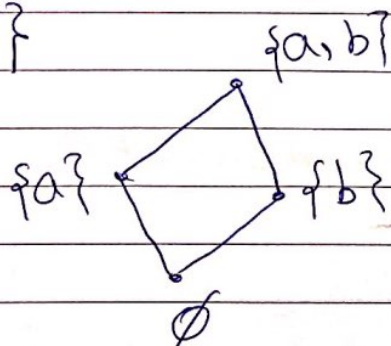 }
{a, b}
{a} {b}
∅